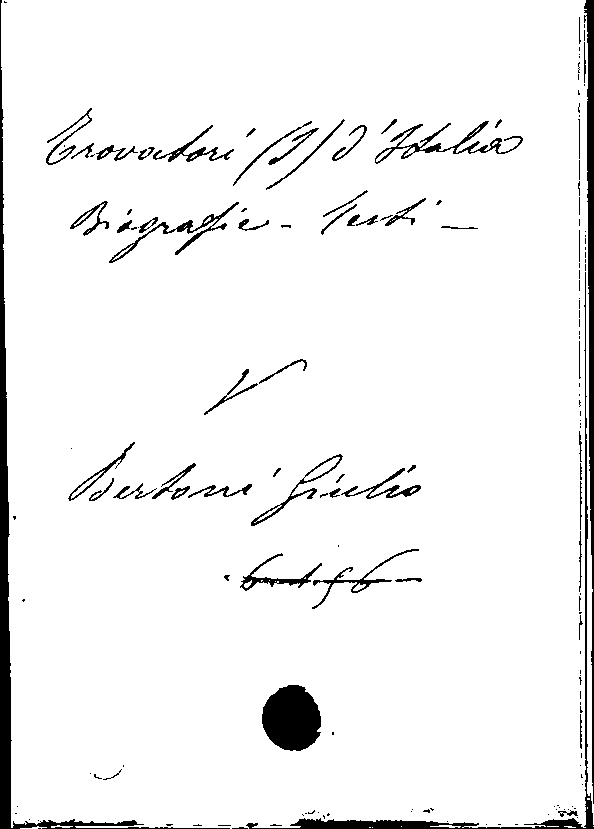 Trovatori (I) d'Italia
Biografie - Testi -
V
Bertoni Giulio